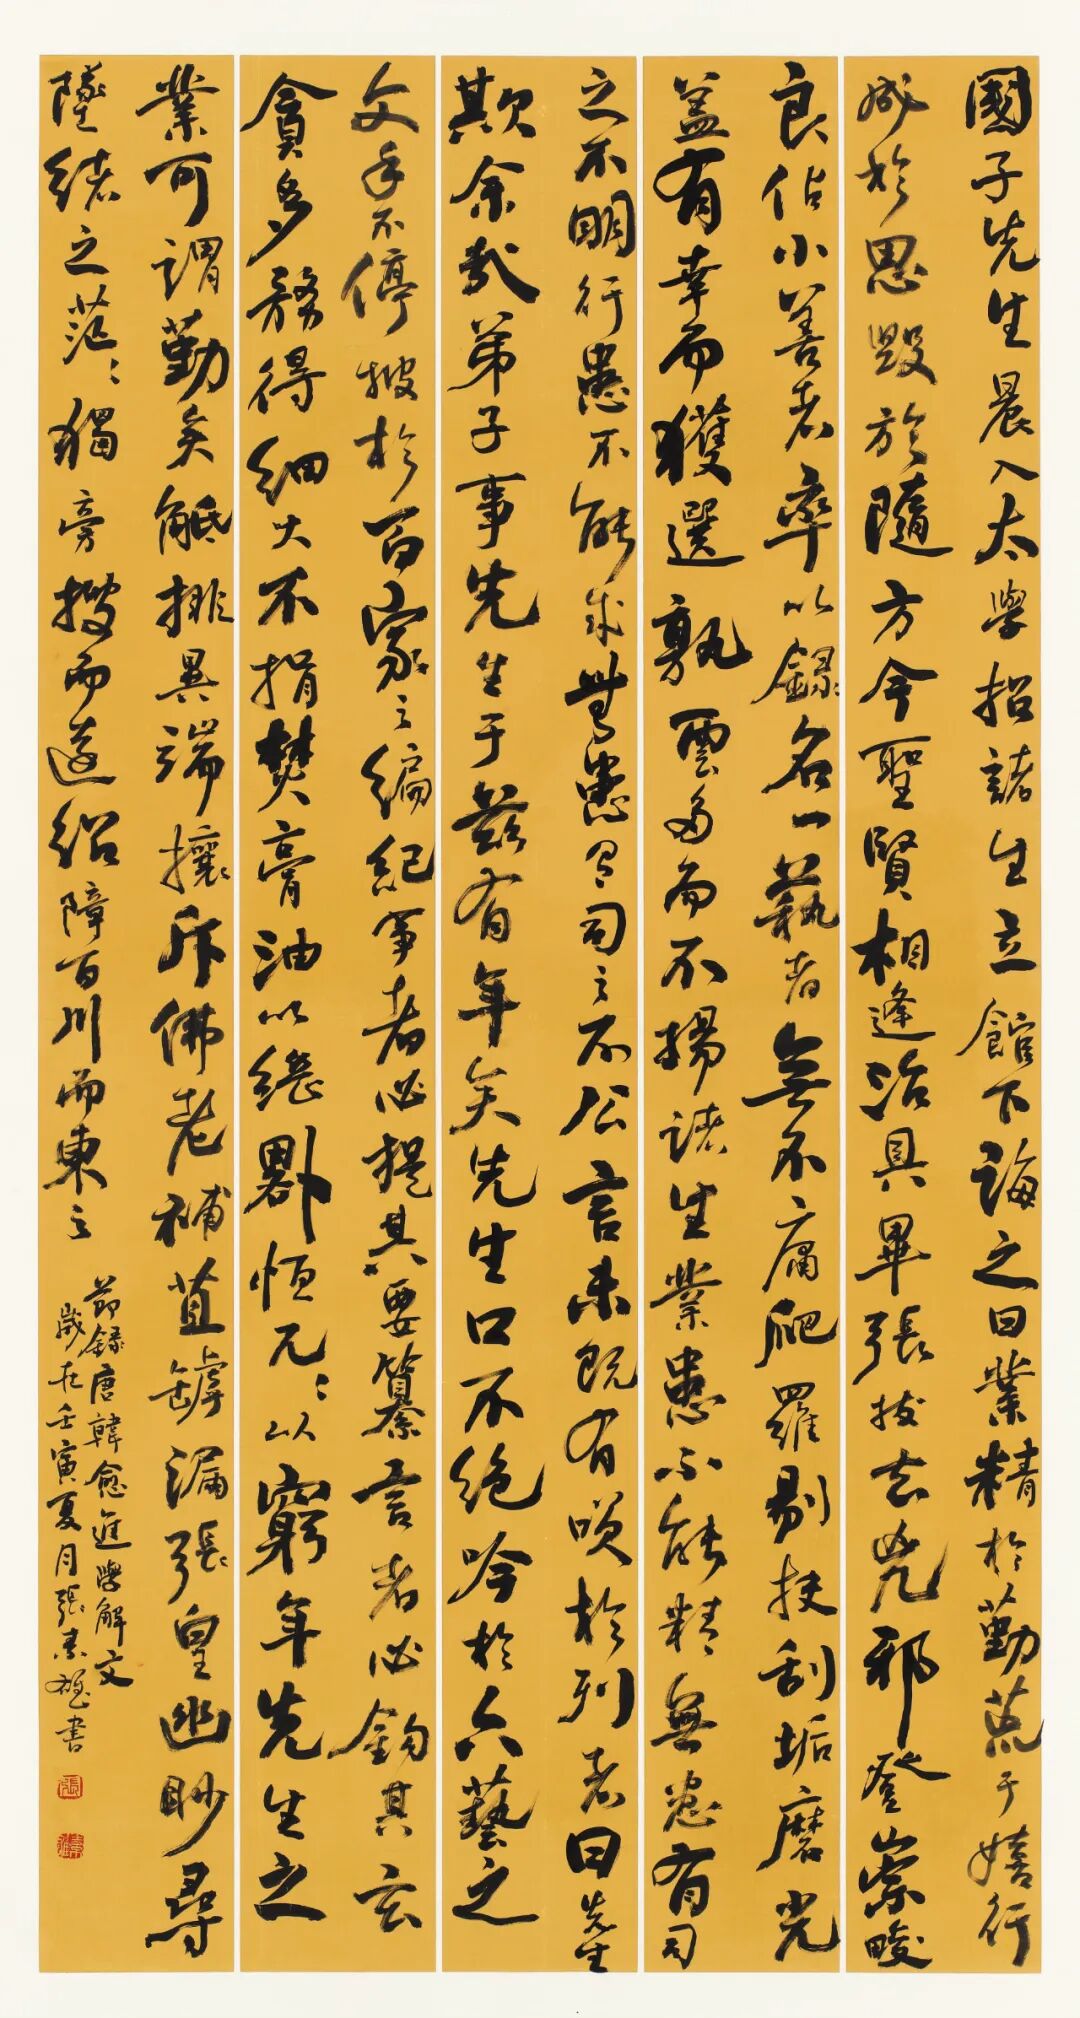 國子先生晨入太學招諸生立館下誨之曰業精於勤荒于嬉行
成於思毀於隨方今聖賢相逢治具畢張拔去兇邪登崇畯
良佔小善者率以錄名一藝者無不庸爬羅剔抉刮垢磨光
蓋有幸而獲選孰雲多而不揚諸生業患不能精無患有司
之不明行患不能成無患有司之不公言未既有笑於列者曰先生
欺余哉弟子事先生于茲有年矣先生口不絕吟於六藝之
文手不停披於百家之編紀事者必提其要纂言者必鉤其玄
貪多務得細大不捐焚膏油以繼晷恒兀〻以窮年先生之
業可謂勤矣觝排異端攘斥佛老補苴罅漏張皇幽眇尋
墜緒之茫〻獨旁搜而遠紹障百川而東之
節錄唐韓愈進學解文
歲在壬寅夏月張雄書
張